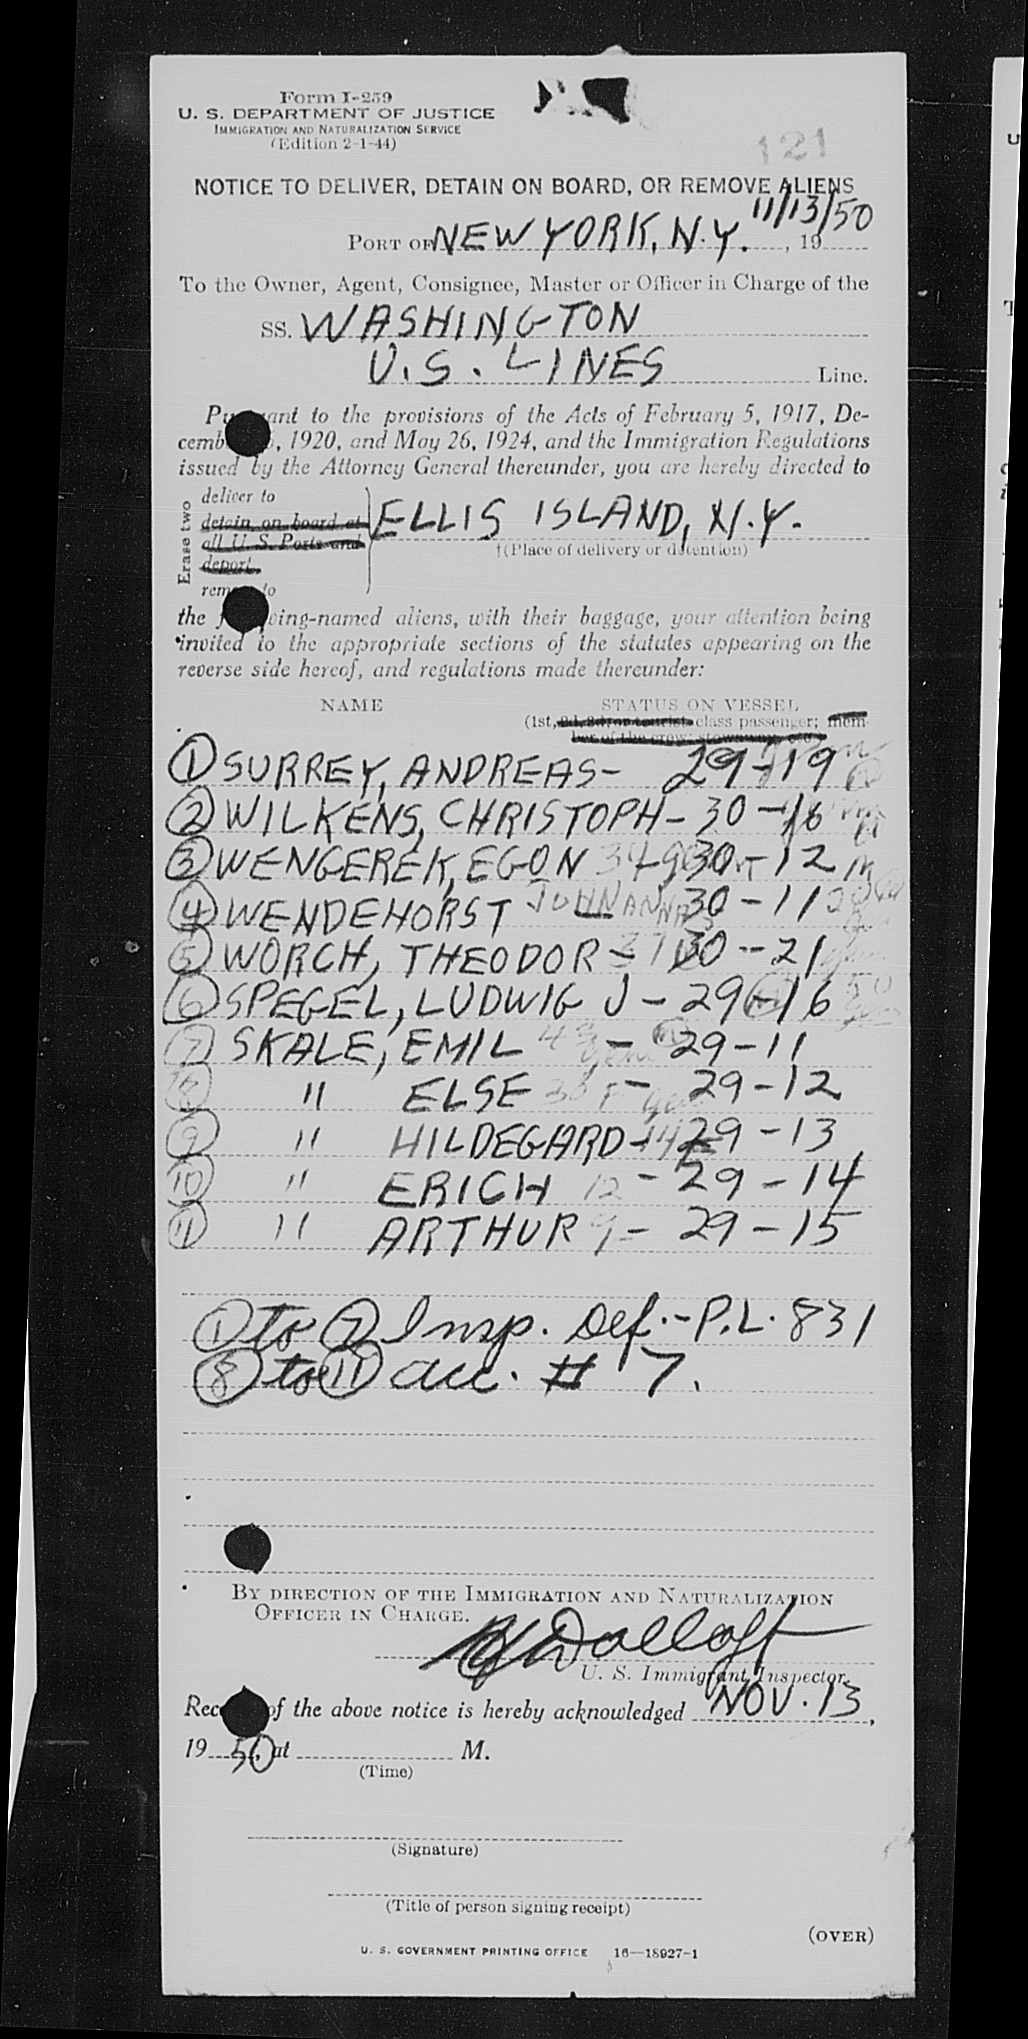 Form I-259
U. S. DEPARTMENT OF JUSTICE
IMMIGRATION AND NATURALIZATION SERVICE
(Edition 2-1-44)
121
NOTICE TO DELIVER, DETAIN ON BOARD, OR REMOVE ALIENS
11/13/50
PORT OF NEW YORK, N.Y. , 19
To the Owner, Agent, Consignee, Master or Officer in Charge of the
SS. WASHINGTON
U.S. LINES Line.
Pursuant to the provisions of the Acts of February 5, 1917, De-
cember , 1920, and May 26, 1924, and the Immigration Regulations
issued by the Attorney General thereunder, you are hereby directed to
Erase two
deliver to
detain on board at
all U. S. Ports and
deport.
remove to
ELLIS ISLAND, N.Y.
†(Place of delivery or detention)
the following-named aliens, with their baggage, your attention being
invited to the appropriate sections of the statutes appearing on the
reverse side hereof, and regulations made thereunder:
NAME STATUS ON VESSEL
(1st, 2d, 3d, or tourist class passenger; mem-
ber of the crew; stowaway, etc.)
1 SURREY, ANDREAS- 29-19
2 WILKENS, CHRISTOPH- 30-16
3 WENGEREK, EGON 34 30-12 M
4 WENDEHORST JOHNANNA 30-11
5 WORCH, THEODOR- 37 30-21
6 SPEGEL, LUDWIG J- 29-16
7 SKALE, EMIL 43 - 29-11
8 " ELSE 33 F - 29-12
9 " HILDEGARD- 14 29-13
10 " ERICH 12 - 29-14
11 " ARTHUR 9 - 29-15
1 to 7 Insp. Def.-P.L. 831
8 to 11 acc. # 7.
BY DIRECTION OF THE IMMIGRATION AND NATURALIZATION
OFFICER IN CHARGE.
U. S. Immigrant Inspector.
Receipt of the above notice is hereby acknowledged NOV. 13,
19 50, at M.
(Time)
(Signature)
(Title of person signing receipt)
(OVER)
U. S. GOVERNMENT PRINTING OFFICE 16—18927-1